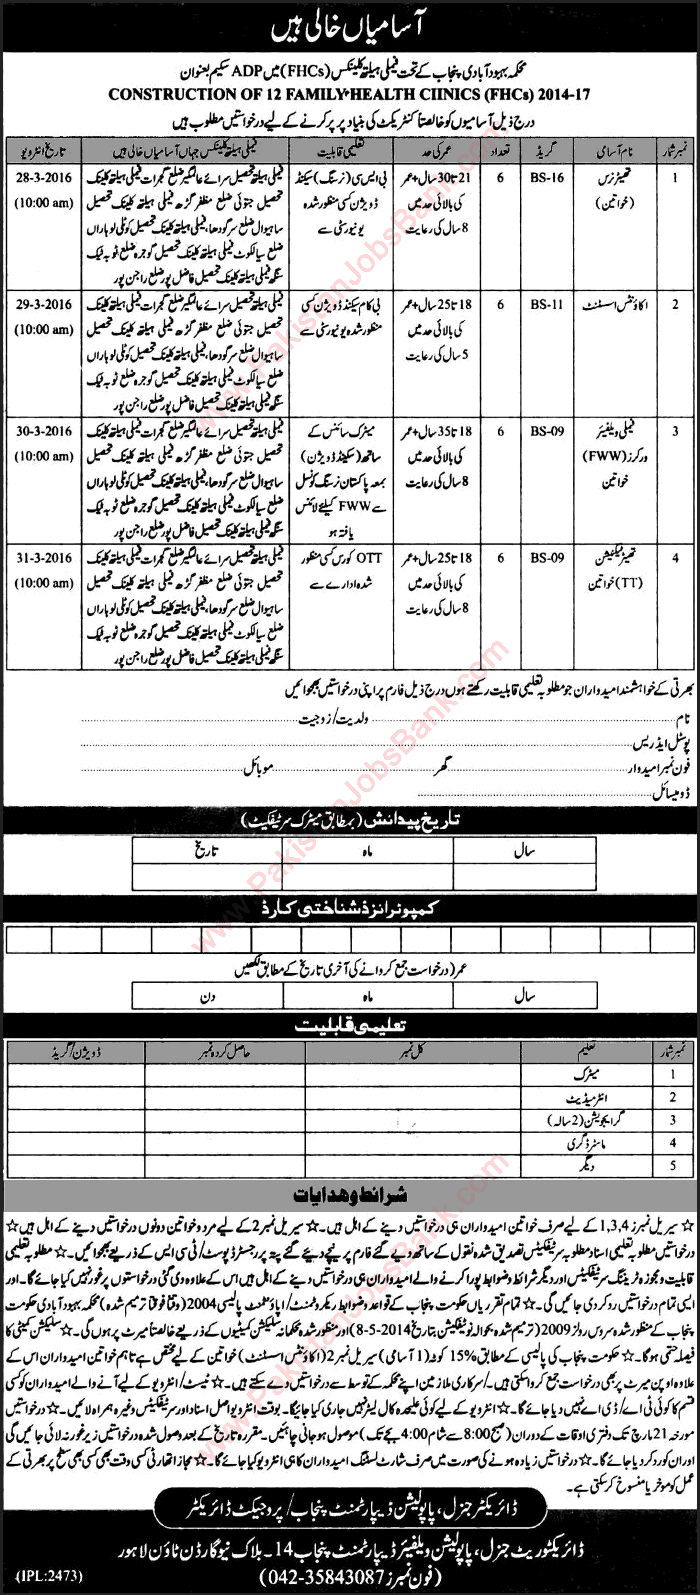 آسامیاں خالی ہیں
محکمہ بہبود آبادی پنجاب کے تحت فیملی ہیلتھ کلینکس (FHCs) میں ADP سکیم بعنوان
CONSTRUCTION OF 12 FAMILY HEALTH CIINICS (FHCs) 2014-17
درج ذیل آسامیوں کو خالصتاً کنٹریکٹ کی بنیاد پر پر کرنے کے لیے درخواستیں مطلوب ہیں
نمبر شمار نام آسامی گریڈ تعداد عمر کی حد تعلیمی قابلیت فیملی ہیلتھ کلینکس جہاں آسامیاں خالی ہیں تاریخ انٹرویو
1 تھیٹر نرس (خواتین) BS-16 6 21 تا 30 سال + عمر کی بالائی حد میں 8 سال کی رعایت بی ایس سی (نرسنگ) سیکنڈ ڈویژن کسی منظور شدہ یونیورسٹی سے فیملی ہیلتھ کلینک تحصیل سرائے عالمگیر ضلع گجرات فیملی ہیلتھ کلینک تحصیل جتوئی ضلع مظفر گڑھ فیملی ہیلتھ کلینک تحصیل ساہیوال ضلع سرگودھا، فیملی ہیلتھ کلینک تحصیل کوٹلی لوہاراں ضلع سیالکوٹ فیملی ہیلتھ کلینک تحصیل گوجرہ ضلع ٹوبہ ٹیک سنگھ فیملی ہیلتھ کلینک تحصیل فاضل پور ضلع راجن پور 28-3-2016 (10:00 am)
2 اکاؤنٹس اسسٹنٹ BS-11 6 18 تا 25 سال + عمر کی بالائی حد میں 5 سال کی رعایت بی کام سیکنڈ ڈویژن کسی منظور شدہ یونیورسٹی سے فیملی ہیلتھ کلینک تحصیل سرائے عالمگیر ضلع گجرات فیملی ہیلتھ کلینک تحصیل جتوئی ضلع مظفر گڑھ فیملی ہیلتھ کلینک تحصیل ساہیوال ضلع سرگودھا، فیملی ہیلتھ کلینک تحصیل کوٹلی لوہاراں ضلع سیالکوٹ فیملی ہیلتھ کلینک تحصیل گوجرہ ضلع ٹوبہ ٹیک سنگھ فیملی ہیلتھ کلینک تحصیل فاضل پور ضلع راجن پور 29-3-2016 (10:00 am)
3 فیملی ویلفیئر ورکرز (FWW) خواتین BS-09 6 18 تا 35 سال + عمر کی بالائی حد میں 8 سال کی رعایت میٹرک سائنس کے ساتھ (سیکنڈ ڈویژن) بمعہ پاکستان نرسنگ کونسل سے FWW کیلئے لائسنس یافتہ ہو فیملی ہیلتھ کلینک تحصیل سرائے عالمگیر ضلع گجرات فیملی ہیلتھ کلینک تحصیل جتوئی ضلع مظفر گڑھ فیملی ہیلتھ کلینک تحصیل ساہیوال ضلع سرگودھا، فیملی ہیلتھ کلینک تحصیل کوٹلی لوہاراں ضلع سیالکوٹ فیملی ہیلتھ کلینک تحصیل گوجرہ ضلع ٹوبہ ٹیک سنگھ فیملی ہیلتھ کلینک تحصیل فاضل پور ضلع راجن پور 30-3-2016 (10:00 am)
4 تھیٹر ٹیکنیشن (TT) خواتین BS-09 6 18 تا 25 سال + عمر کی بالائی حد میں 8 سال کی رعایت OTT کورس کسی منظور شدہ ادارے سے فیملی ہیلتھ کلینک تحصیل سرائے عالمگیر ضلع گجرات فیملی ہیلتھ کلینک تحصیل جتوئی ضلع مظفر گڑھ فیملی ہیلتھ کلینک تحصیل ساہیوال ضلع سرگودھا، فیملی ہیلتھ کلینک تحصیل کوٹلی لوہاراں ضلع سیالکوٹ فیملی ہیلتھ کلینک تحصیل گوجرہ ضلع ٹوبہ ٹیک سنگھ فیملی ہیلتھ کلینک تحصیل فاضل پور ضلع راجن پور 31-3-2016 (10:00 am)
بھرتی کے خواہشمند امیدواران جو مطلوبہ تعلیمی قابلیت رکھتے ہوں درج ذیل فارم پر اپنی درخواستیں بھجوائیں
نام ولدیت/زوجیت
پوسٹل ایڈریس
فون نمبر امیدوار گھر موبائل
ڈومیسائل
تاریخ پیدائش (بمطابق میٹرک سرٹیفکیٹ)
سال ماہ تاریخ
کمپوٹرائزڈ شناختی کارڈ
عمر (درخواست جمع کروانے کی آخری تاریخ کے مطابق لکھیں
سال ماہ دن
تعلیمی قابلیت
نمبر شمار تعلیم کل نمبر حاصل کردہ نمبر ڈویژن/گریڈ
1 میٹرک
2 انٹرمیڈیٹ
3 گرایجویشن (2 سالہ)
4 ماسٹر ڈگری
5 دیگر
شرائط و ھدایات
☆ سیریل نمبرز 1,3,4 کے لیے صرف خواتین امیدواران ہی درخواستیں دینے کے اہل ہیں۔ ☆ سیریل نمبر 2 کے لیے مرد و خواتین دونوں درخواستیں دینے کے اہل ہیں ☆
درخواستیں مطلوبہ تعلیمی اسناد مطلوبہ سرٹیفکیٹس تصدیق شدہ نقول کے ساتھ دیے گئے فارم پر نیچے دیئے گئے پتہ پر رجسٹرڈ پوسٹ/ٹی سی ایس کے ذریعے بھجوائیں۔ ☆ مطلوبہ تعلیمی
قابلیت و مجوزہ ٹریننگ سرٹیفکیٹس اور دیگر شرائط و ضوابط پورا کرنے والے امیدواران ہی درخواستیں دینے کے اہل ہیں اس کے علاوہ دی گئی درخواستوں پر غور نہیں کیا جائے گا۔ اور
ایسی تمام درخواستیں رد کر دی جائیں گی۔ ☆ تمام تقرریاں حکومت پنجاب کے قواعد و ضوابط ریکروٹمنٹ/اپائنٹمنٹ پالیسی 2004 (وقتاً فوقتاً ترمیم شدہ) محکمہ بہبود آبادی حکومت
پنجاب کے منظور شدہ سروس رولز 2009 (ترمیم شدہ بحوالہ نوٹیفکیشن بتاریخ 8-5-2014) اور منظور شدہ محکمانہ سلیکشن کمیٹیوں کے ذریعے خالصتاً میرٹ پر ہوں گی۔ ☆ سلیکشن کمیٹی کا
فیصلہ حتمی ہوگا۔ ☆ حکومت پنجاب کی پالیسی کے مطابق 15% کوٹہ (1 آسامی) سیریل نمبر 2 (اکاؤنٹس اسسٹنٹ) خواتین کے لیے مختص ہے تاہم خواتین امیدواران اس کے
علاوہ اوپن میرٹ پر بھی درخواست جمع کروا سکتی ہیں۔/سرکاری ملازمین اپنے محکمہ کے توسط سے درخواستیں دے سکتے ہیں۔ ☆ ٹیسٹ/انٹرویو کے لیے آنے والے امیدواران کو کسی
قسم کا کوئی ٹی اے/ڈی اے نہیں دیا جائے گا۔ ☆ انٹرویو کے لیے کوئی علیحدہ کال لیٹر نہیں جاری کیا جائیگا۔ ☆ بوقت انٹرویو اصل اسناد اور سرٹیفکیٹس وغیرہ ہمراہ لائیں۔ ☆ درخواستیں
مورخہ 21 مارچ تک دفتری اوقات کے دوران (صبح 8:00 سے شام 4:00 بجے تک) موصول ہو جانی چاہئیں۔ مقررہ تاریخ کے بعد وصول شدہ درخواستیں زیر غور نہ لائی جائیں گی
اور ان کو رد کر دیا جائے گا۔ ☆ درخواستیں زیادہ ہونے کی صورت میں صرف شارٹ لسٹنگ امیدواران کا ہی انٹرویو کیا جائے گا۔ ☆ مجاز اتھارٹی کسی وقت بھی کسی بھی سطح پر بھرتی کے
عمل کو موخر یا منسوخ کر سکتی ہے۔
ڈائریکٹر جنرل، پاپولیشن ڈیپارٹمنٹ پنجاب/پروجیکٹ ڈائریکٹر
ڈائریکٹوریٹ جنرل، پاپولیشن ویلفیئر ڈیپارٹمنٹ پنجاب 14-بلاک نیو گارڈن ٹاؤن لاہور
(فون نمبرز 042-35843087)
(IPL:2473)
www.PakistanJobsBank.com
www.PakistanJobsBank.com
www.PakistanJobsBank.com